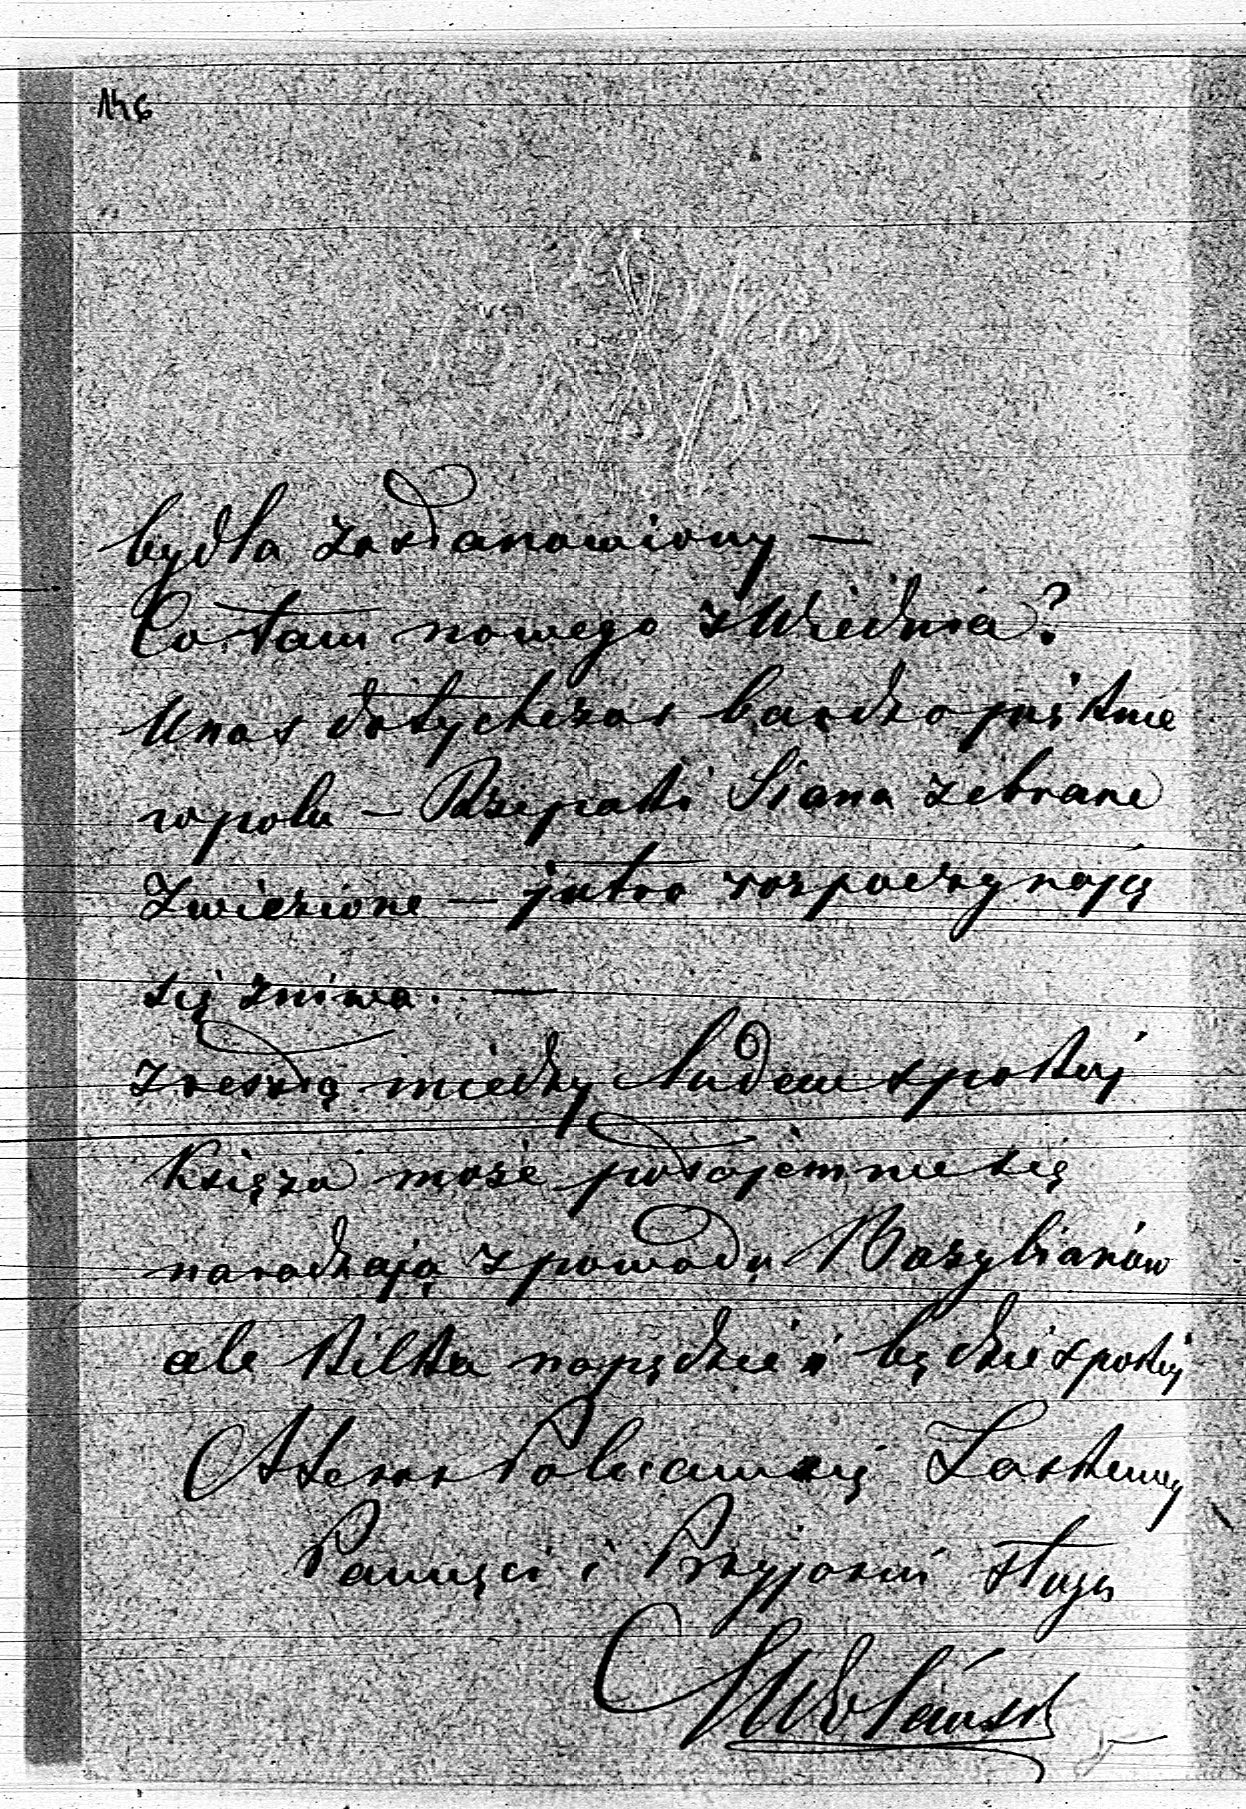 146
bydła zastanowiony —
Co tam nowego z Wiednia?
U nas dotychczas bardzo pięknie
w polu — Rzepaki Siana zebrane
Zwiezione — jutro rozpoczynają
się żniwa. —
zresztą między Ludem spokój
Księża może potajemnie się
naradzają z powodu Bazylianów
ale kilka napędzie i będzie spokój
A teraz Polecam się Łaskawej
Pamięci i Przyjaźni sługa